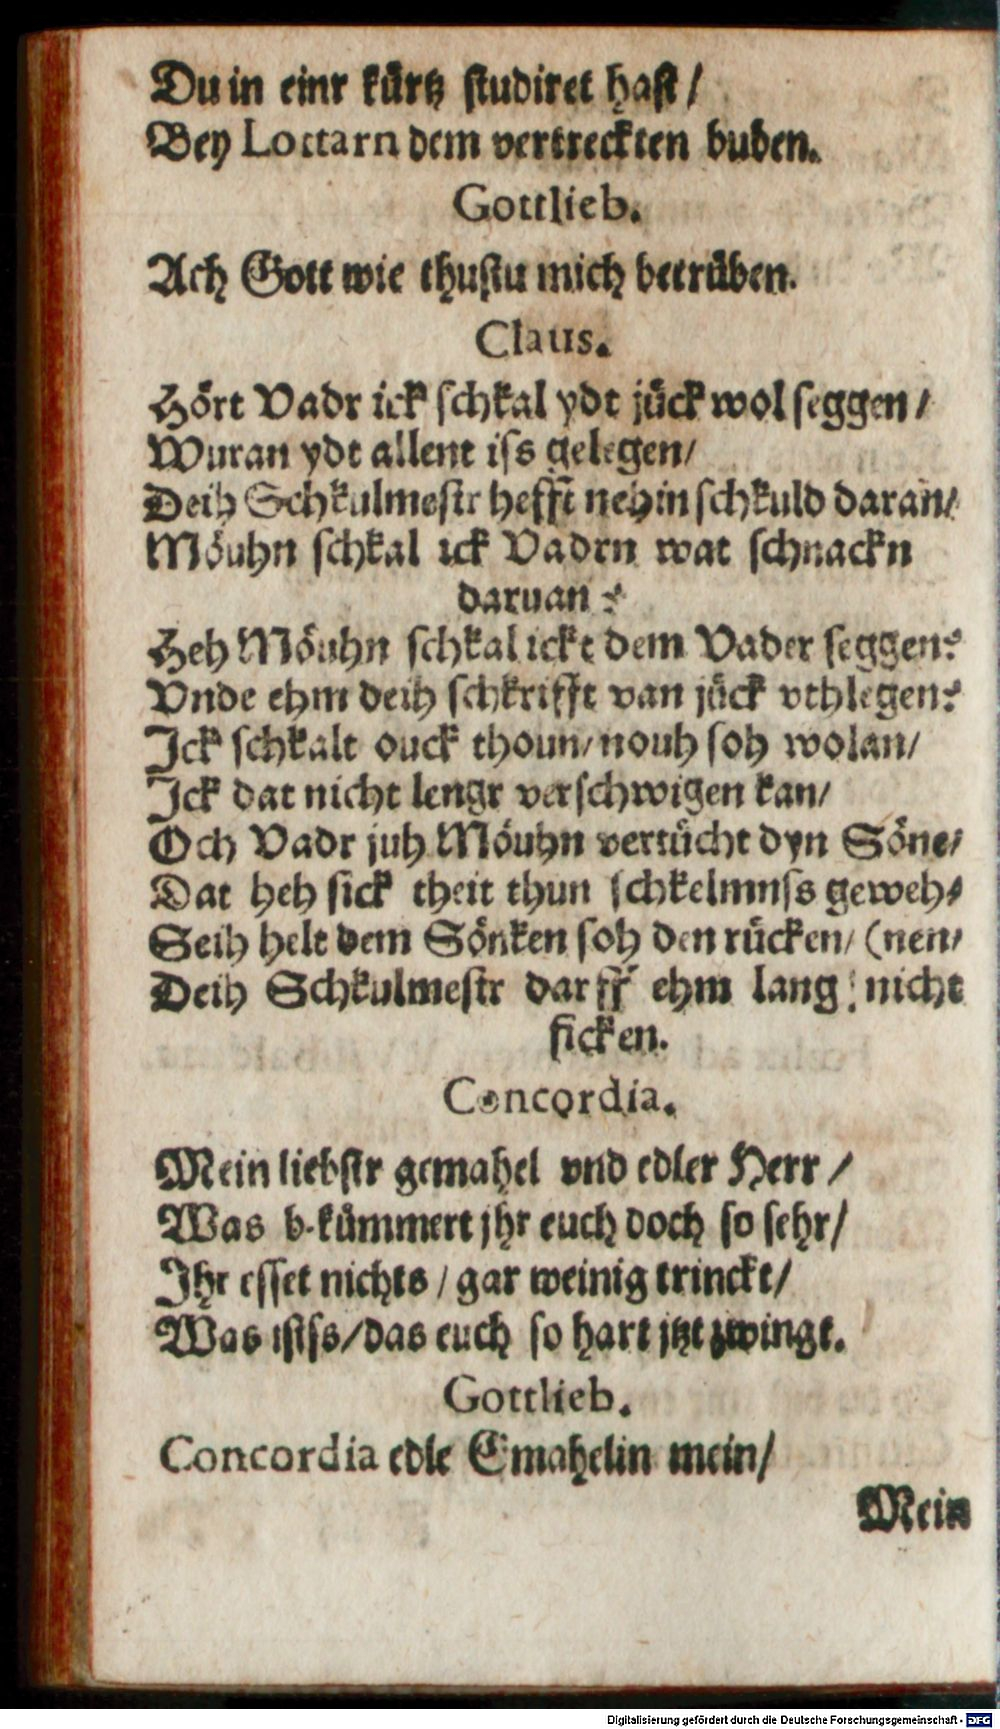 Du in einr kürtz studiret hast /
Bey Lottarn dem vertreckten buben.
Gottlieb.
Ach Gott wie thustu mich betrüben.
Claus.
Hört Vadr ick schkal ydt jück wol seggen /
Wuran ydt allent iss gelegen/
Deih Schkulmestr hefft nehin schkuld daran/
Möuhn schkal ick Vadrn wat schnackn
daruan?
Heh Möuhn schkal ickt dem Vader seggen?
Vnde ehm deih schkrifft van jück vthlegen?
Jck schkalt ouck thoun/ nouh soh wolan/
Jck dat nicht lengr verschwigen kan/
Och Vadr juh Möuhn vertücht dyn Söne/
Dat heh sick theit thun schkelmnss geweh-
Seih helt dem Sönken soh den rücken/ (nen/
Deih Schkulmestr darff ehm lang nicht
ficken.
Concordia.
Mein liebstr gemahel vnd edler Herr /
Was b-kümmert jhr euch doch so sehr/
Jhr esset nichts / gar weinig trinckt/
Was istss/das euch so hart jtzt zwingt.
Gottlieb.
Concordia edle Emahelin mein/
Mein
Digitalisierung gefördert durch die Deutsche Forschungsgemeinschaft - DFG